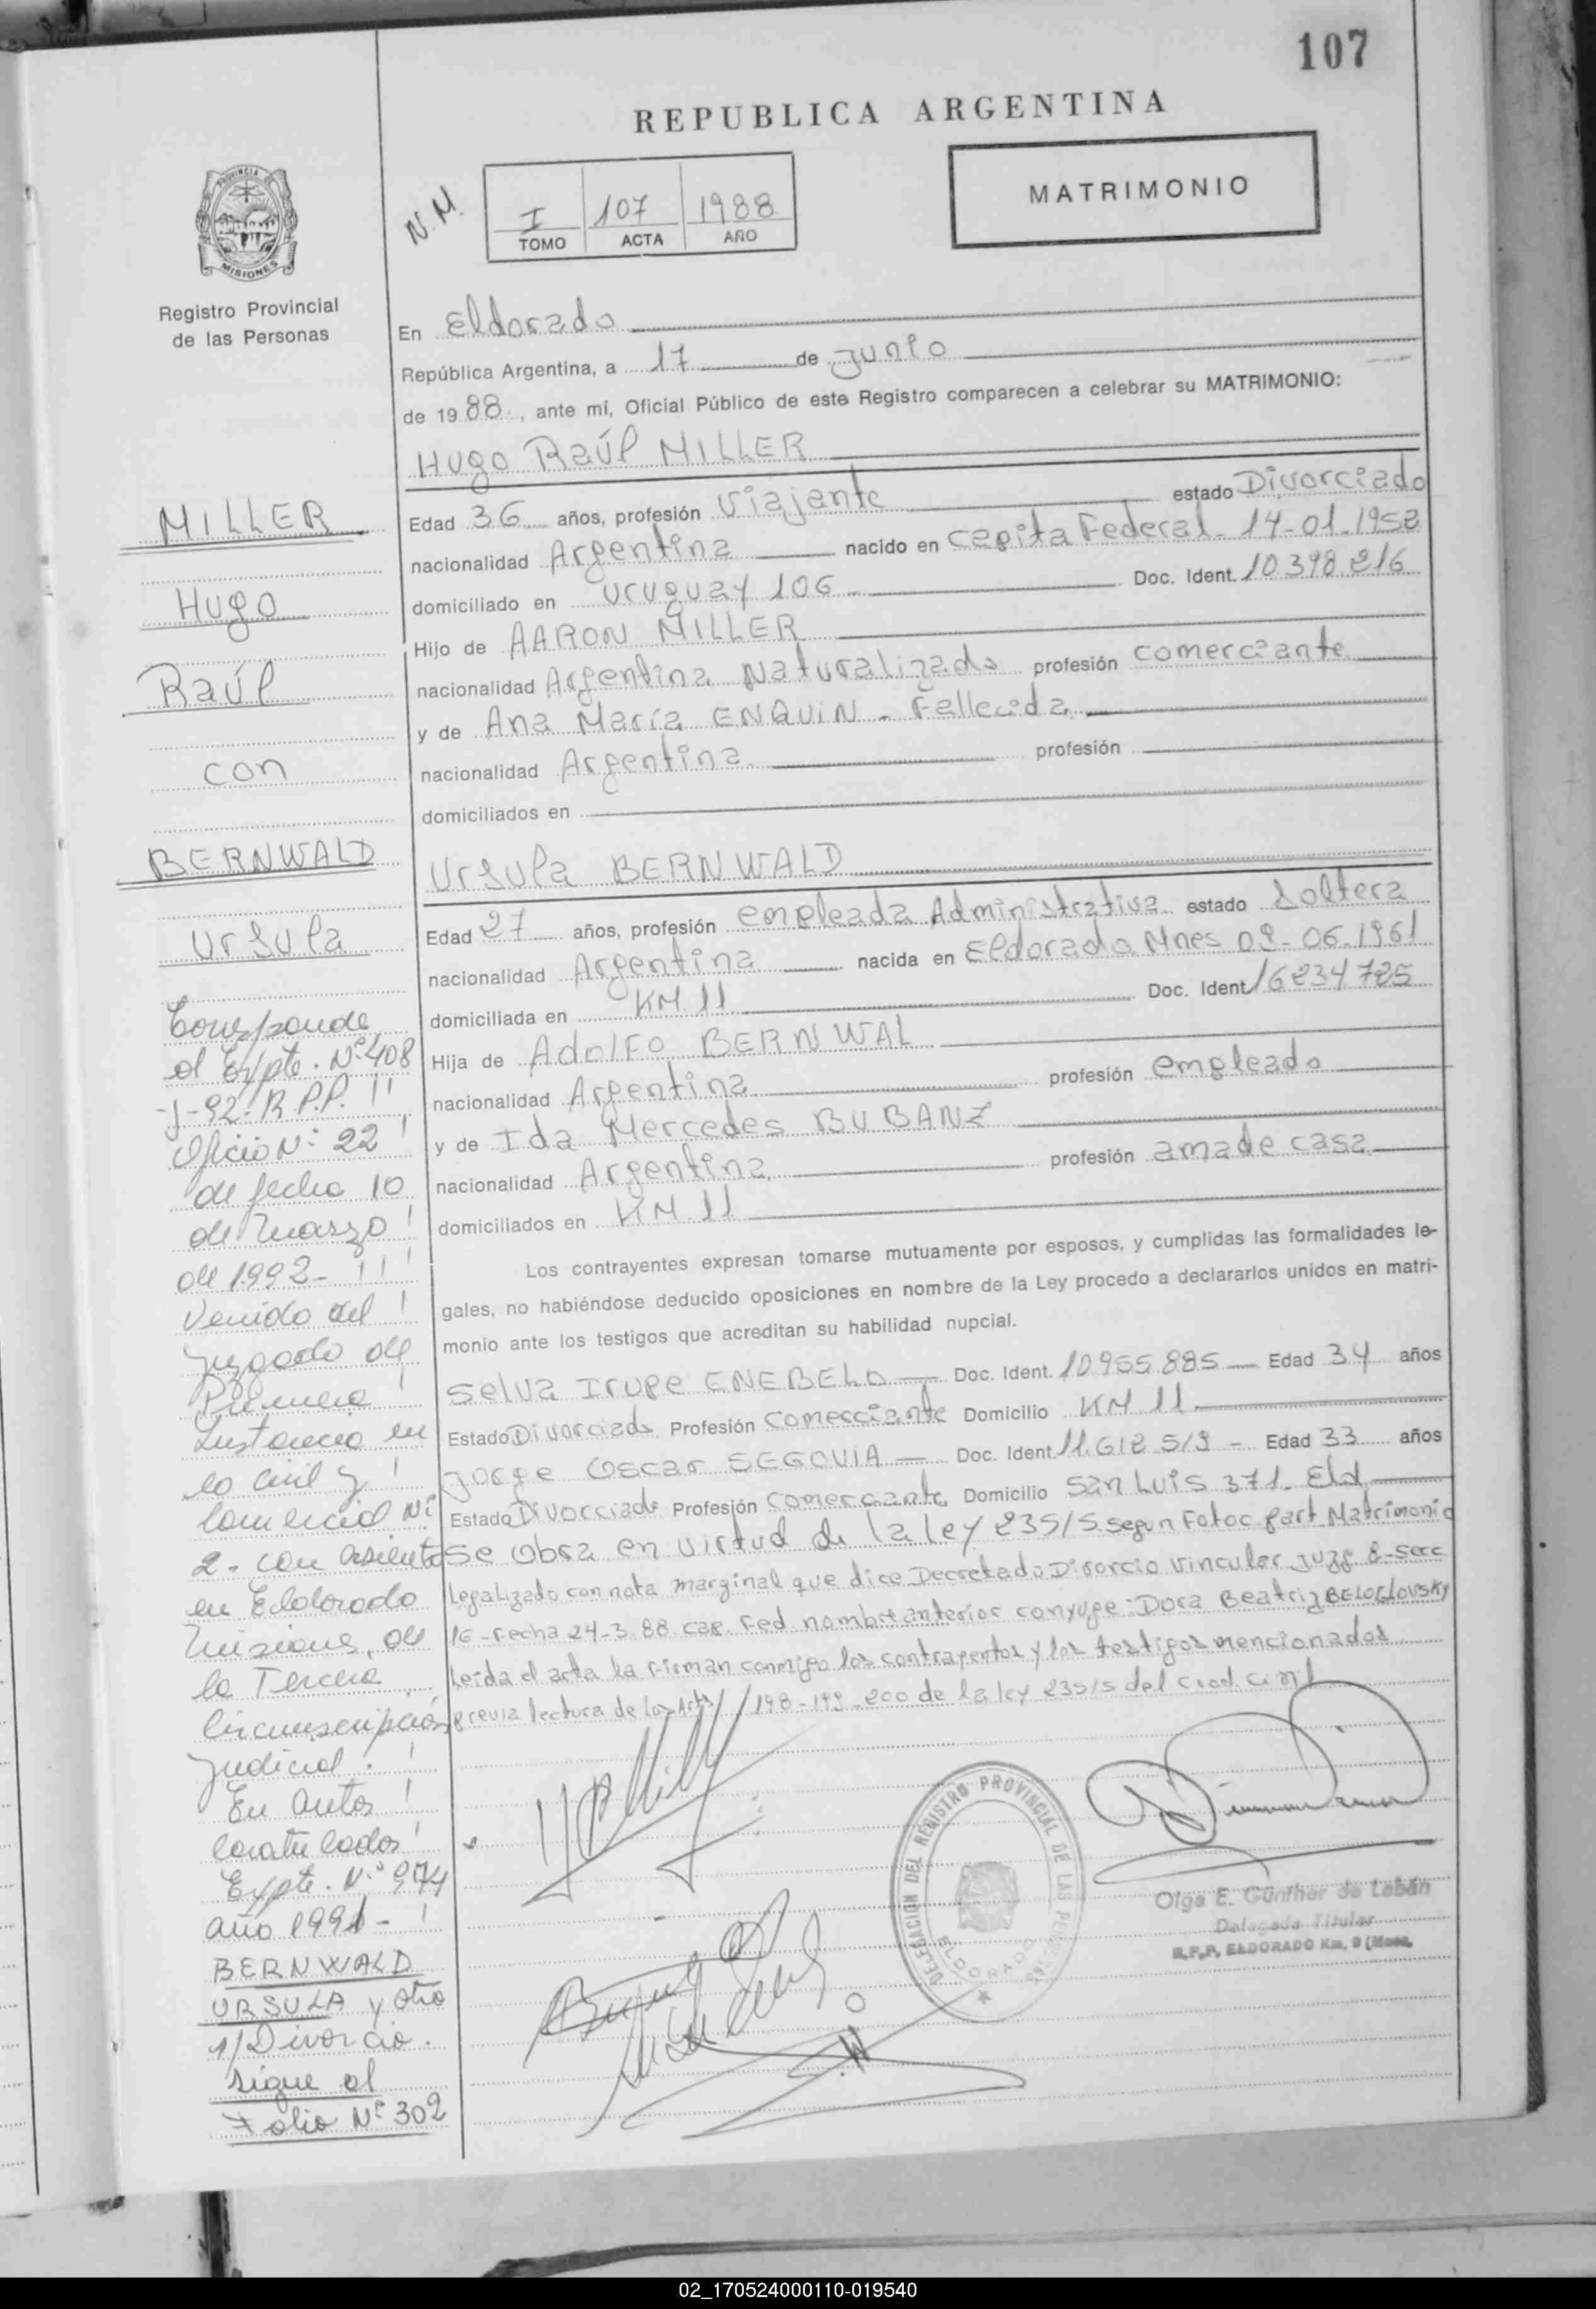 107
REPUBLICA ARGENTINA
PROVINCIA DE
MISIONES
Registro Provincial
de las Personas
N.M.
I 107 1988
TOMO ACTA AÑO
MATRIMONIO
En Eldorado
República Argentina, a 17 de Junio
de 1988, ante mí, Oficial Público de este Registro comparecen a celebrar su MATRIMONIO:
Hugo Raúl MILLER
Edad 36 años, profesión Viajante estado Divorciado
nacionalidad Argentina nacido en Capita Federal. 14-01-1952
domiciliado en Uruguay 106 Doc. Ident. 10.398.216
Hijo de AARON MILLER
nacionalidad Argentina Naturalizado profesión comerciante
y de Ana María ENQUIN - Fallecida
nacionalidad Argentina profesión
domiciliados en
Ursula BERNWALD
Edad 27 años, profesión empleada Administrativa estado Soltera
nacionalidad Argentina nacida en Eldorado Mnes 09-06-1961
domiciliada en KM 11 Doc. Ident 16234725
Hija de Adolfo BERNWAL
nacionalidad Argentina profesión empleado
y de Ida Mercedes BUBANZ
nacionalidad Argentina profesión ama de casa
domiciliados en KM 11
Los contrayentes expresan tomarse mutuamente por esposos, y cumplidas las formalidades le-
gales, no habiéndose deducido oposiciones en nombre de la Ley procedo a declararlos unidos en matri-
monio ante los testigos que acreditan su habilidad nupcial.
Selva Irupe ENEBELO Doc. Ident. 10.955.885 Edad 34 años
Estado Divorciada Profesión Comerciante Domicilio KM 11
Jorge Oscar SEGOVIA Doc. Ident. 11.612.519 - Edad 33 años
Estado Divorciado Profesión Comerciante Domicilio San Luis 371. Eld
Se obra en virtud de la ley 23515 segun Fotoc part Matrimonio
legalizado con nota marginal que dice Decretado Divorcio vincular Juzg 8-Secc
16-Fecha 24-3-88 cap. Fed. nombre anterior conyuge: Dora Beatriz BELOGLOVSKY
Leida el acta la firman conmigo los contrayentes y los testigos mencionados
previa lectura de los Arts 198-199-200 de la ley 23515 del Cod. Civil
MILLER
Hugo
Raúl
con
BERNWALD
Ursula
Corresponde
al Expte. Nº 408
-J-92-R.P.P.
Oficio Nº 22
de fecha 10
de marzo
de 1992-
Venido del
Juzgado de
Primera
Instancia en
lo Civil y
Comercial Nº
2- con asiento
en Eldorado
Misiones, de
la Tercera
Circunscripción
Judicial.
En autos
caratulados
Expte. Nº 974
año 1991-
BERNWALD
URSULA y otro
s/Divorcio.
sigue al
Folio Nº 302
DELEGACION DEL REGISTRO PROVINCIAL DE LAS PERSONAS
ELDORADO
Olga E. Günther de Lebán
Delegada Titular
R.P.P. ELDORADO Km. 9 (Mnes.
02_170524000110-019540